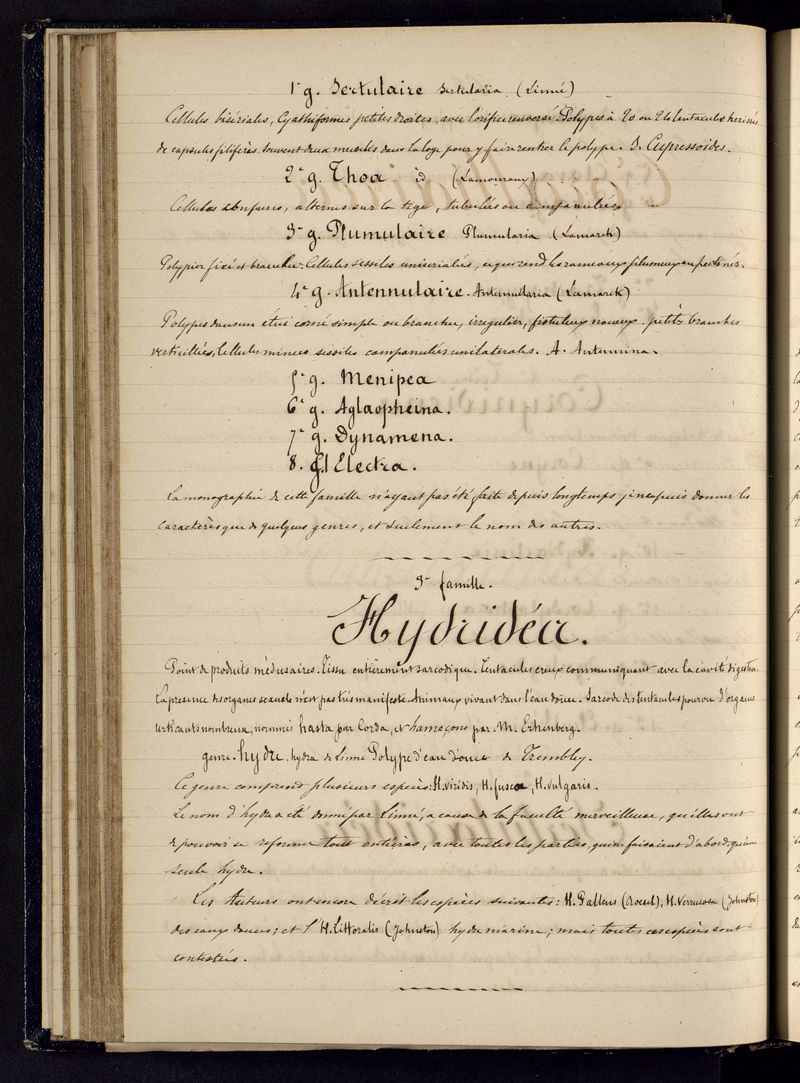 1r g. Sertulaire Sertularia (Linné)
Cellules bisériales, Cyathiformes petites droites, avec l'orifice renversé. Polypes à 20 ou 24 tentacules herisés
de capsules filifères. souvent deux muscles dans la loge pour y faire rentrer le polype. S. Cupressoides.
2e g. Thoa id (Lamouroux)
Cellules alternes sur la tige, tubulées ou campanulées
3e g. Plumulaire Plumularia (Lamarck)
Polypier fixé et branchu. Cellules sessiles unisérialées, ce qui rend les rameaux plumeux ou pectinés.
4e g. Antennulaire. Antennullaria (Lamarck)
Polypes dans un etui corné simple ou branchu, irregulier, fistuleux noueux. petites branches
verticillées, Cellules minces sessiles campanulées unilaterales. A. Antennina.
5e g. Menipea
6e g. Aglaopheina.
7e g. Dynamena.
8. g. Electra.
La monographie de cette famille n'ayant pas été faite depuis longtemps je ne puis donner les
caractères que de quelques genres, et seulement le nom des autres.
3e famille.
Hydridéa.
Point de produits médusaires. Tissu entièrement sarcodique. Tentacules creux communiquant avec la cavité digestive
La presence des organes sexuels n'est pas très manifeste. Animaux vivant dans l'eau douce. Sarcode des tentacules pourvu d'organes
urticants nombreux, nommés hasta par Corda, et hameçons par M. Erhenberg.
genre. hydre. hydra de Linné Polype d'eau douce de Trembley.
Ce genre comprend plusieurs espèces: H. viridis, H. fusca, H. vulgaris.
Le nom d'hydre a été donné par Linné, a cause de la faculté merveilleuse, qu'elles ont
de pouvoir se reformer tout entières, avec toutes les parties, qui ne faisaient d'abord, qu'une
seule hydre.
Les Auteurs ont encore décrit les espèces suivantes: H. Pallens (Roesel), H. Verrucosa (Johnston)
des eaux douces; et l'H. Littoralis (Johnston) hydre marine; mais toutes ces espèces sont
contestées.